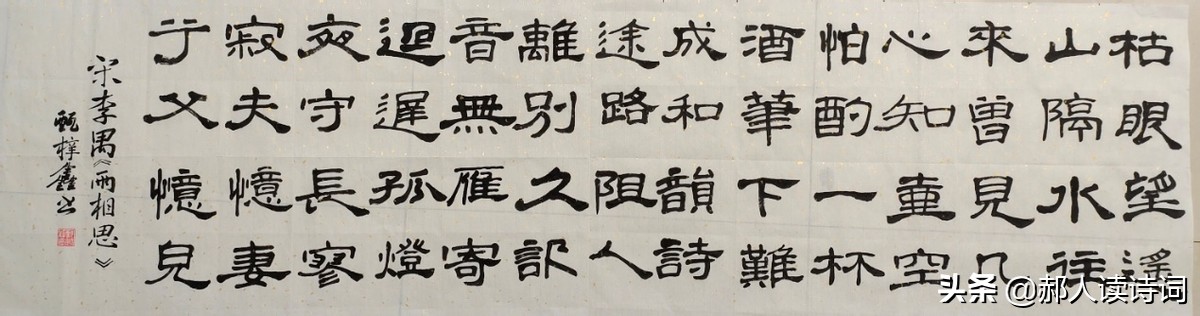 枯眼望遙
山隔水往
來曾見几
心知壺空
怕酌一杯
酒筆下難
成和韻詩
途路阻人
離別久訊
音無雁寄
迴遲孤燈
夜守長寥
寂夫憶妻
兮父憶兒
宋李禺《兩相思》
甄梓鑫书
头条 @郝人读诗词